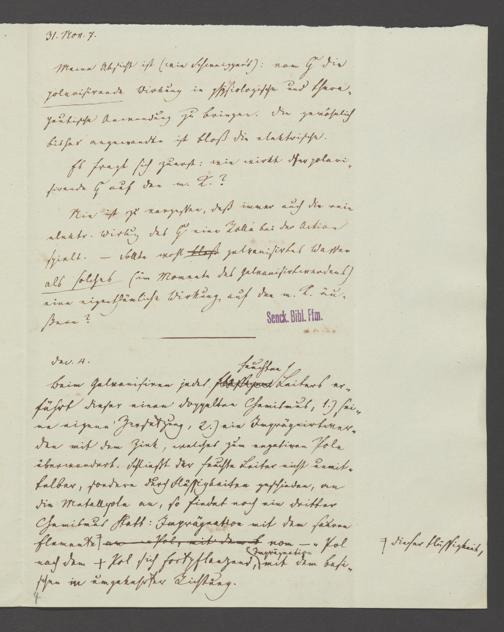 31. Nov. 7.
Meine Absicht ist (wie Schweiggers): vom G die
polarisirende Wirkung in physiologische und thera-
peutische Anwendung zu bringen. Die gewöhnlich
bisher angewandte ist bloß die elektrische.
Es fragt sich zuerst: wie wirkt der polari-
sirende G auf den m. K.?
Nie ist zu vergessen, daß immer auch die rein
elektr. Wirkung des G eine Rolle bei der Action
spielt. — Sollte wohl bloß galvanisirtes Wasser
als solches (im Momente des Galvanisirtwerdens)
eine eigenthümliche Wirkung auf den m. K. äu-
ßern?
Senck. Bibl. Ffm.
Dec. 4.
feuchten
Beim Galvanisiren jedes Leiters er-
fährt dieser einen doppelten Chemismus, 1.) sei-
ne eigene Zersetzung, 2.) ein Imprägnirtwer-
den mit dem Zink, welches zum negativen Pole
überwandert. Schließt der feuchte Leiter nicht unmit-
telbar, sondern durch Flüssigkeiten geschieden, an
die Metallpole an, so findet noch ein dritter
Chemismus statt: Imprägnation mit dem sauren
Elemente vom — Pol
nach dem + Pol sich fortpflanzend, Imprägnation mit dem basi-
schen in umgekehrter Richtung.
dieser Flüssigkeit,